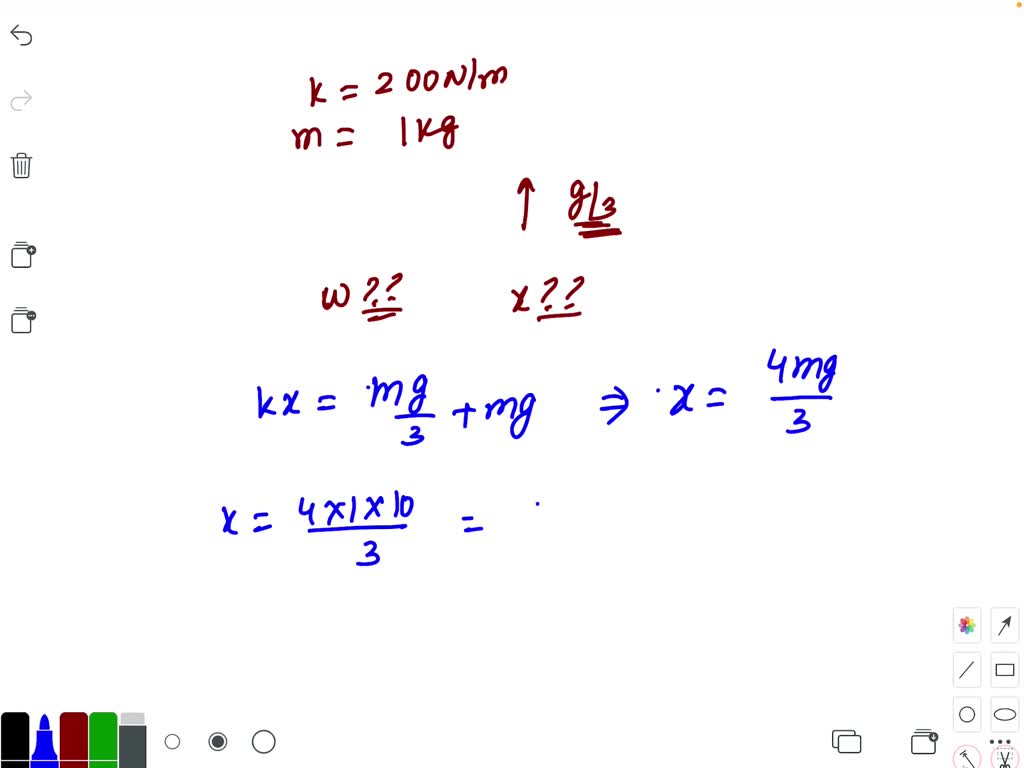 k = 200N/m
m = 1kg
↑ g/3
w ?? x ??
kx = mg/3 + mg ⇒ x = 4mg/3
x = 4×1×10/3 =